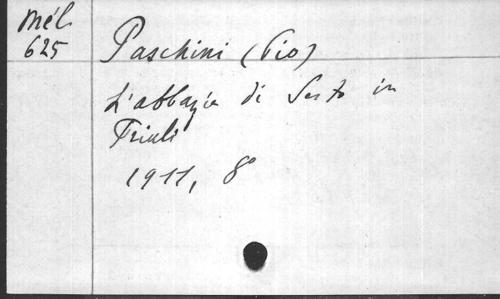 Mél.
625
Paschini (Pio)
L'abbazia di Sesto in
Friuli
1911, 8°